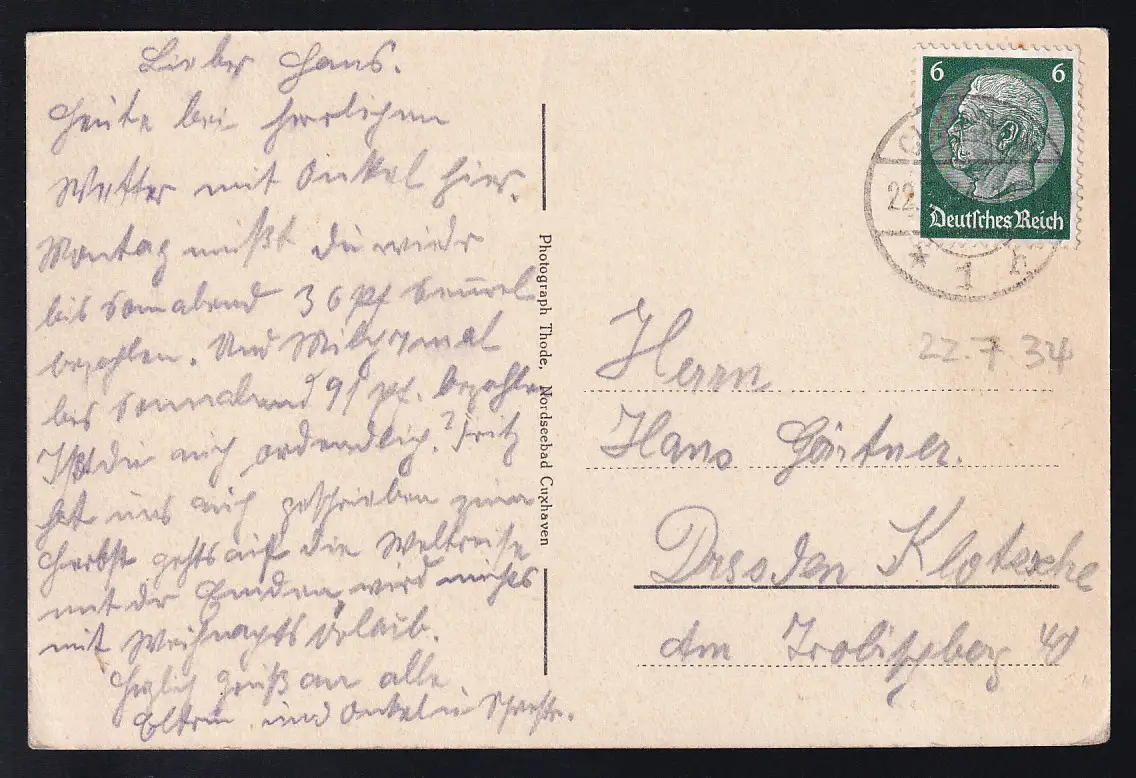 Lieber Hans.
Heute bei herrlichem
Wetter mit Onkel hier.
Montag mußt du wieder
bis Sonnabend 36 Pf
bezahlen. Und Milch mal
bis Sonnabend 91 Pf. bezahlen
Ißt du auch ordendlich? Fritz
hat uns auch geschrieben zum
Herbst gehts auf die Weltreise
mit der Emden, wird nichts
mit Weihnachts Urlaub.
Herzlich grüß an alle
Eltern und Onkel
Photograph Thode, Nordseebad Cuxhaven
6 6
Deutsches Reich
22.
* 1 h
22.7.34
Herrn
Hans Gärtner.
Dresden Klotzsche
Am